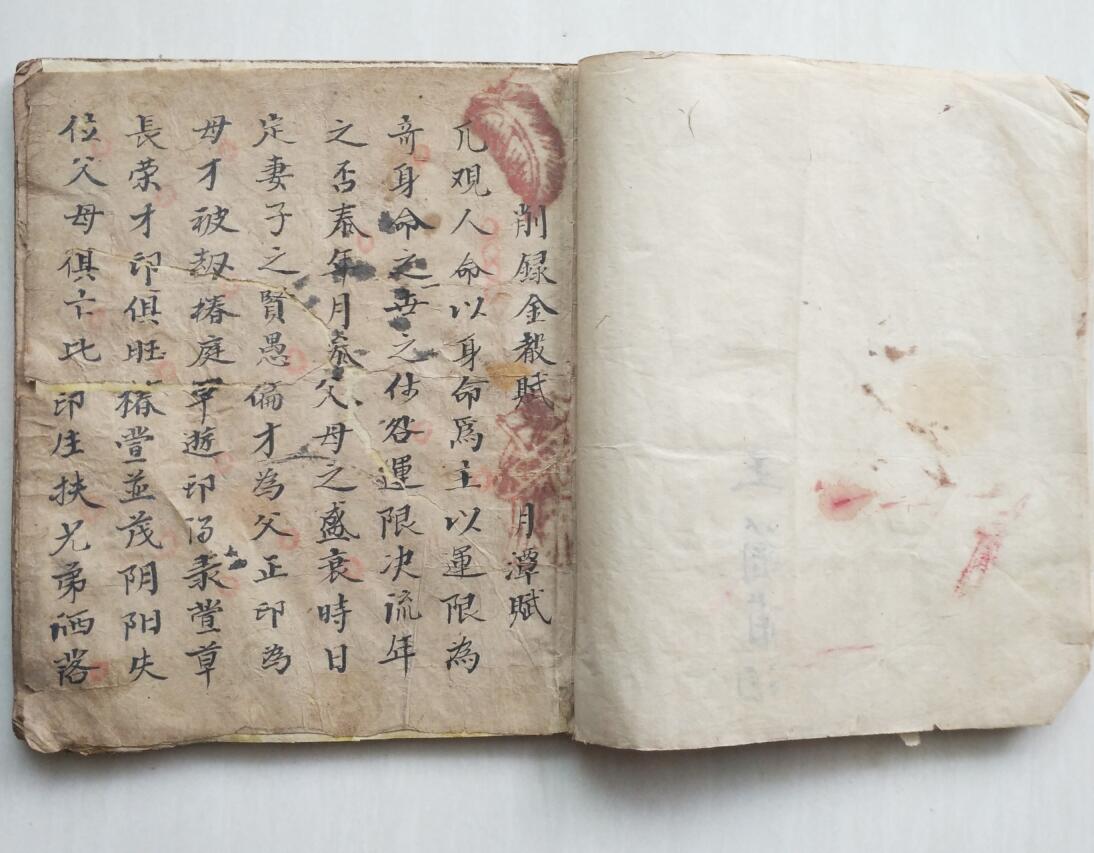 削録金教賦 月潭賦
凢观人命以身命為主以運限為
奇身命之 之 咎運限决流年
之否泰年月 父母之盛衰時日
定妻子之賢愚偏才為父正印為
母才被刼椿庭早逝印 萱草
長荣才印俱旺椿萱並茂阴阳失
位父母俱亡比印生扶兄弟洒落